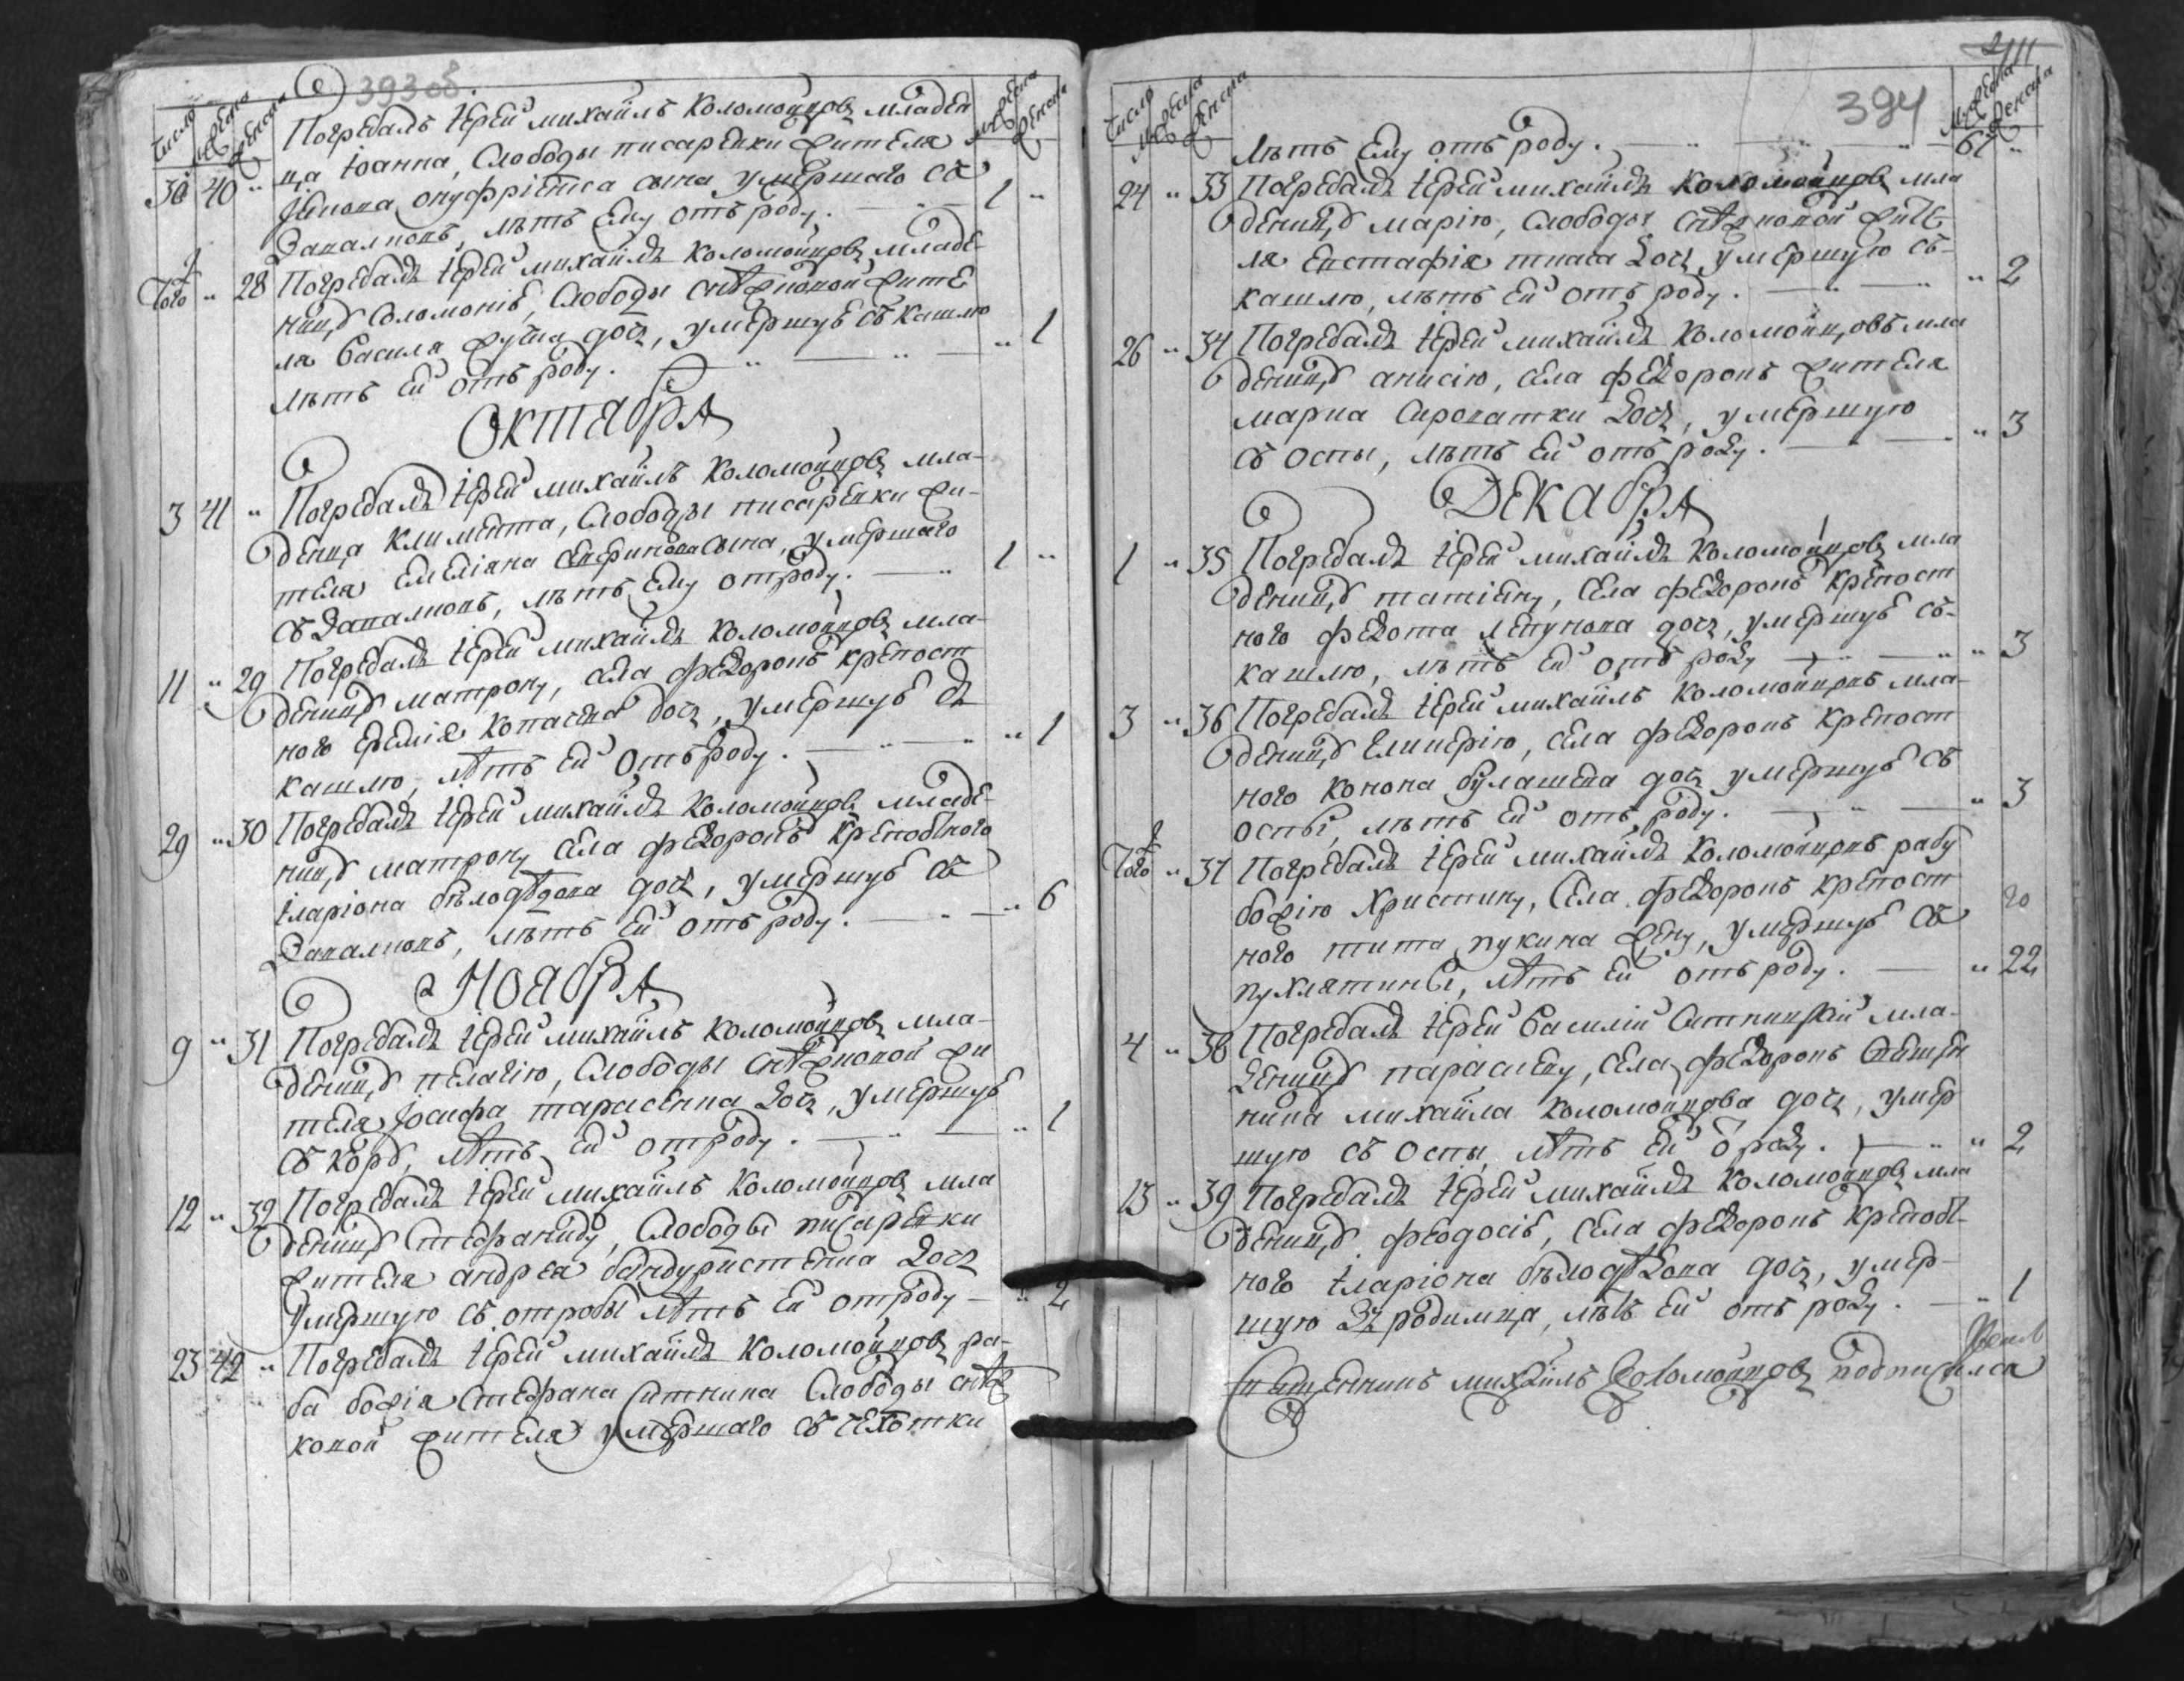 393 об.
Число
Мужеска
Женска
Мужеска
Женска
Погребалъ іерей михаилъ Коломойцовъ младен
30 40 " ца Іоанна, Слободы писаревки жителя
онуфріева сына умершаго съ
Запалновъ, лѣтъ Ему отъ роду. 1 "
Того 28 Погребалъ іерей михаилъ Коломойцовъ младе-
ницу Соломонію, Слободы Снѣжковой жите
ля Василя дочь, умершую съ кашлю
лѣтъ Ей отъ роду. " 1
Октября
3 41 " Погребалъ іерей михаилъ Коломойцовъ мла-
денца Климента, Слободы писаревки жи-
теля Емеліана сына, умершаго
съ Запалновъ, лѣтъ Ему отроду. 1 "
11 " 29 Погребалъ іерей михаилъ Коломойцовъ мла-
деницу матрону, села Федоровъ крепост
ного Еремія дочь, умершую съ
кашлю, лѣтъ Ей отъ роду. " 1
29 " 30 Погребалъ іерей михаилъ Коломойцовъ младе-
ницу матрону села Федоровъ крепостного
іларіона бѣлодѣдова дочь, умершую съ
Запалновъ, лѣтъ Ей отъ роду. " 6
Ноября
9 " 31 Погребалъ іерей михаилъ Коломойцовъ мла-
деницу пелагію, Слободы Снѣжковой жи
теля Іосифа тарасенка дочь, умершую
съ корю, лѣтъ Ей отроду. " 1
12 " 32 Погребалъ іерей михаилъ Коломойцовъ мла
деницу стефаниду, Слободы писаревки
жителя андрея бандуристенка дочь
умершую съ отробы лѣтъ Ей отроду " 2
23 42 " Погребалъ іерей михаилъ Коломойцовъ ра-
ба божія Стефана Ситника Слободы снѣж
ковой жителя умершаго съ чехотки
394
Число
Мужеска
Женска
Мужеска
Женска
лѣтъ Ему отъ роду. 67 "
24 " 33 Погребалъ іерей михаилъ Коломойцовъ мла
деницу марію, Слободы Снѣжковой жите
ля Евстафія ткача дочь умершую съ
кашлю, лѣтъ Ей отъ роду. " 2
26 " 34 Погребалъ іерей михаилъ Коломойцовъ мла
деницу анисію, села Федоровъ жителя
марка Сироватки дочь, умершую
съ оспы, лѣтъ Ей отъ роду. " 3
Декабря
1 " 35 Погребалъ іерей михаилъ Коломойцовъ мла
деницу татіану, села Федоровъ крепост
ного Федота дочь, умершую съ
кашлю, лѣтъ Ей отъ роду " 3
3 " 36 Погребалъ іерей михаилъ Коломойцовъ мла-
деницу Гликерію, села Федоровъ крепост
ного Конона булашева дочь умершую съ
оспы, лѣтъ Ей отъ роду. " 3
Того " 37 Погребалъ іерей михаилъ Коломойцовъ рабу
божію Христину, Села Федоровъ крепост
ного тита жену, умершую съ 20
пухлятины, лѣтъ Ей отъ роду. " 22
4 " 38 Погребалъ іерей Василій Ситницкій мла-
деницу параскеву, села Федоровъ священ
ника михаила Коломойцова дочь, умер
шую съ оспы, лѣтъ Ей о роду. " 2
13 " 39 Погребалъ іерей михаилъ Коломойцовъ мла
деницу феодосію, села Федоровъ крепост-
ного іларіона бѣлодѣдова дочь, умер-
шую Зъ родимца, лѣтъ Ей отъ роду. " 1
Священникъ михаилъ Коломойцовъ подписался